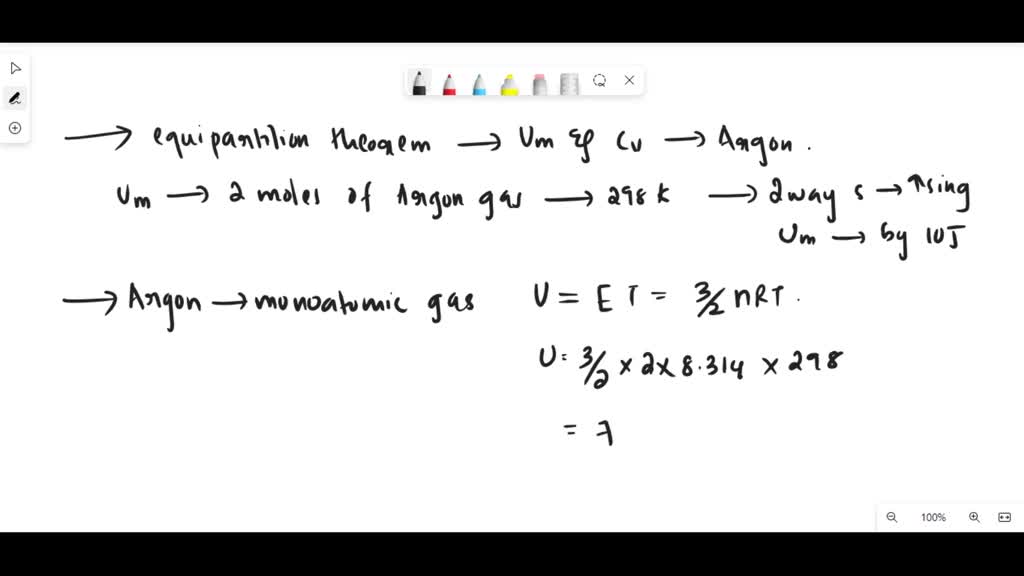 → equipartition theorem → Um & Cv → Argon.
Um → 2 moles of Argon gas → 298 K → 2 ways → ↑sing
Um → by 10J
→ Argon → monoatomic gas U = ET = 3/2 nRT.
U = 3/2 × 2 × 8.314 × 298
= 7
100%